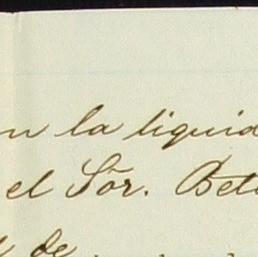 n la liquid
el Sõr. Bet
de